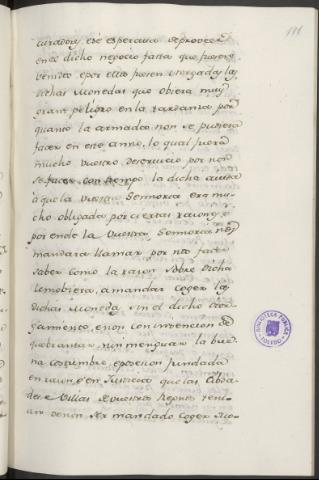 curadores ese esperaua deproveer
en el dicho negocio fasta que fuesen
venidos e por ellos fuesen otorgadas las
dichas Monedas que obiera muy
grant peligro en la tardanza por
quanto la armada non se pudiera
facer en este anno, lo qual fuera
mucho vuestro deseruicio por non
se facer con tiempo la dicha armada
à que la vuestra Sennoria era mu-
cho obligada por ciertas razones e
por ende la vuestra Sennoria
mandara llamar por nos facer
saber como la razon sobre dicha
le mobiera, a mandar coger las
dichas Monedas sin el dicho otor-
gamiento, e non con intencion de
quebrantar, nin menguar la bue-
na costumbre, e posesion fundada
en razon e en Justicia que las Cibda-
des e Villas de vuestros Regnos teni-
an de non ser mandado coger Mo-
186
BIBLIOTECA PUBLICA
TOLEDO